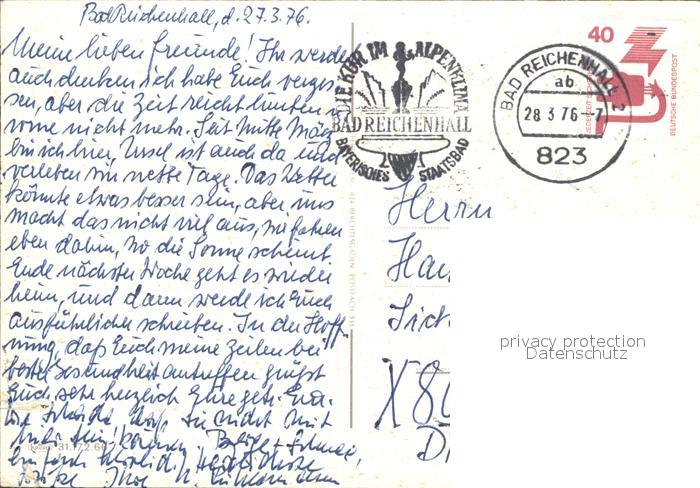 Bad Reichenhall, d. 27.3.76.
Meine lieben Freunde! Ihr werdet
auch denken ich habe Euch verges-
sen, aber die Zeit reicht hinten u.
vorne nicht mehr. Seit Mitte März
bin ich hier, Ursel ist auch da und
verleben wir nette Tage. Das Wetter
könnte etwas besser sein, aber uns
macht das nicht viel aus, wir fahren
eben dahin, wo die Sonne scheint.
Ende nächster Woche geht es wieder
heim, und dann werde ich Euch
ausführlicher schreiben. In der Hoff-
nung, daß Euch meine Zeilen bei
bester Gesundheit antreffen grüßt
Euch sehr herzlich Eure
nicht mit
Berge + Schnee,
Grüße
31.172.66
824 BERCHTESGADEN POSTFACH
DIE KUR IM ALPENKLIMA
BAD REICHENHALL
BAYERISCHES STAATSBAD
BAD REICHENHALL 2
ab
28.3.76-7
823
40
JEDERZEIT
DEUTSCHE BUNDESPOST
Herrn
Han
X80
D
privacy protection
Datenschutz